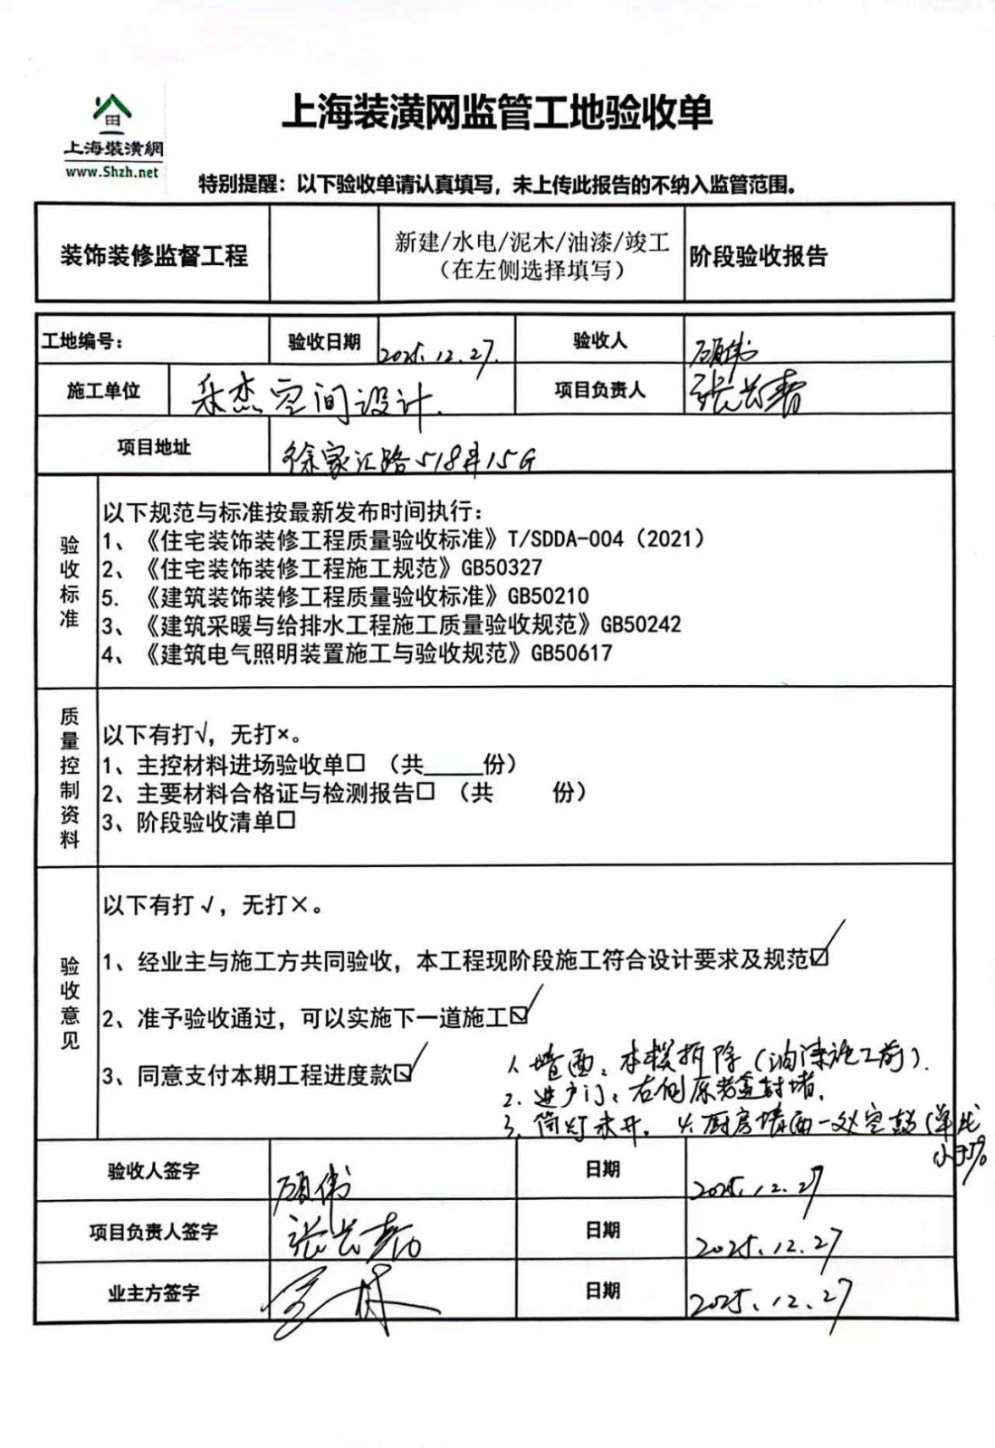 上海装潢网监管工地验收单
上海装潢網
www.Shzh.net
特别提醒：以下验收单请认真填写，未上传此报告的不纳入监管范围。
装饰装修监督工程
新建/水电/泥木/油漆/竣工
（在左侧选择填写）
阶段验收报告
工地编号：
验收日期 2025.12.27.
验收人 顾伟
施工单位 采杰空间设计.
项目负责人 张长春
项目地址 徐家汇路518弄15G
验收标准
以下规范与标准按最新发布时间执行：
1、《住宅装饰装修工程质量验收标准》T/SDDA-004（2021）
2、《住宅装饰装修工程施工规范》GB50327
5. 《建筑装饰装修工程质量验收标准》GB50210
3、《建筑采暖与给排水工程施工质量验收规范》GB50242
4、《建筑电气照明装置施工与验收规范》GB50617
质量控制资料
以下有打√，无打×。
1、主控材料进场验收单□ （共_____份）
2、主要材料合格证与检测报告□ （共 份）
3、阶段验收清单□
验收意见
以下有打√，无打×。
1、经业主与施工方共同验收，本工程现阶段施工符合设计要求及规范☑
2、准予验收通过，可以实施下一道施工☑
3、同意支付本期工程进度款☑
1. 墙面：木模拆除（油漆施工前）.
2. 进户门：右侧原 封堵.
3. 筒灯未开. 4. 厨房墙面一处空鼓（单块
小于5%
验收人签字 顾伟 日期 2025.12.27
项目负责人签字 张长春 日期 2025.12.27
业主方签字 日期 2025.12.27